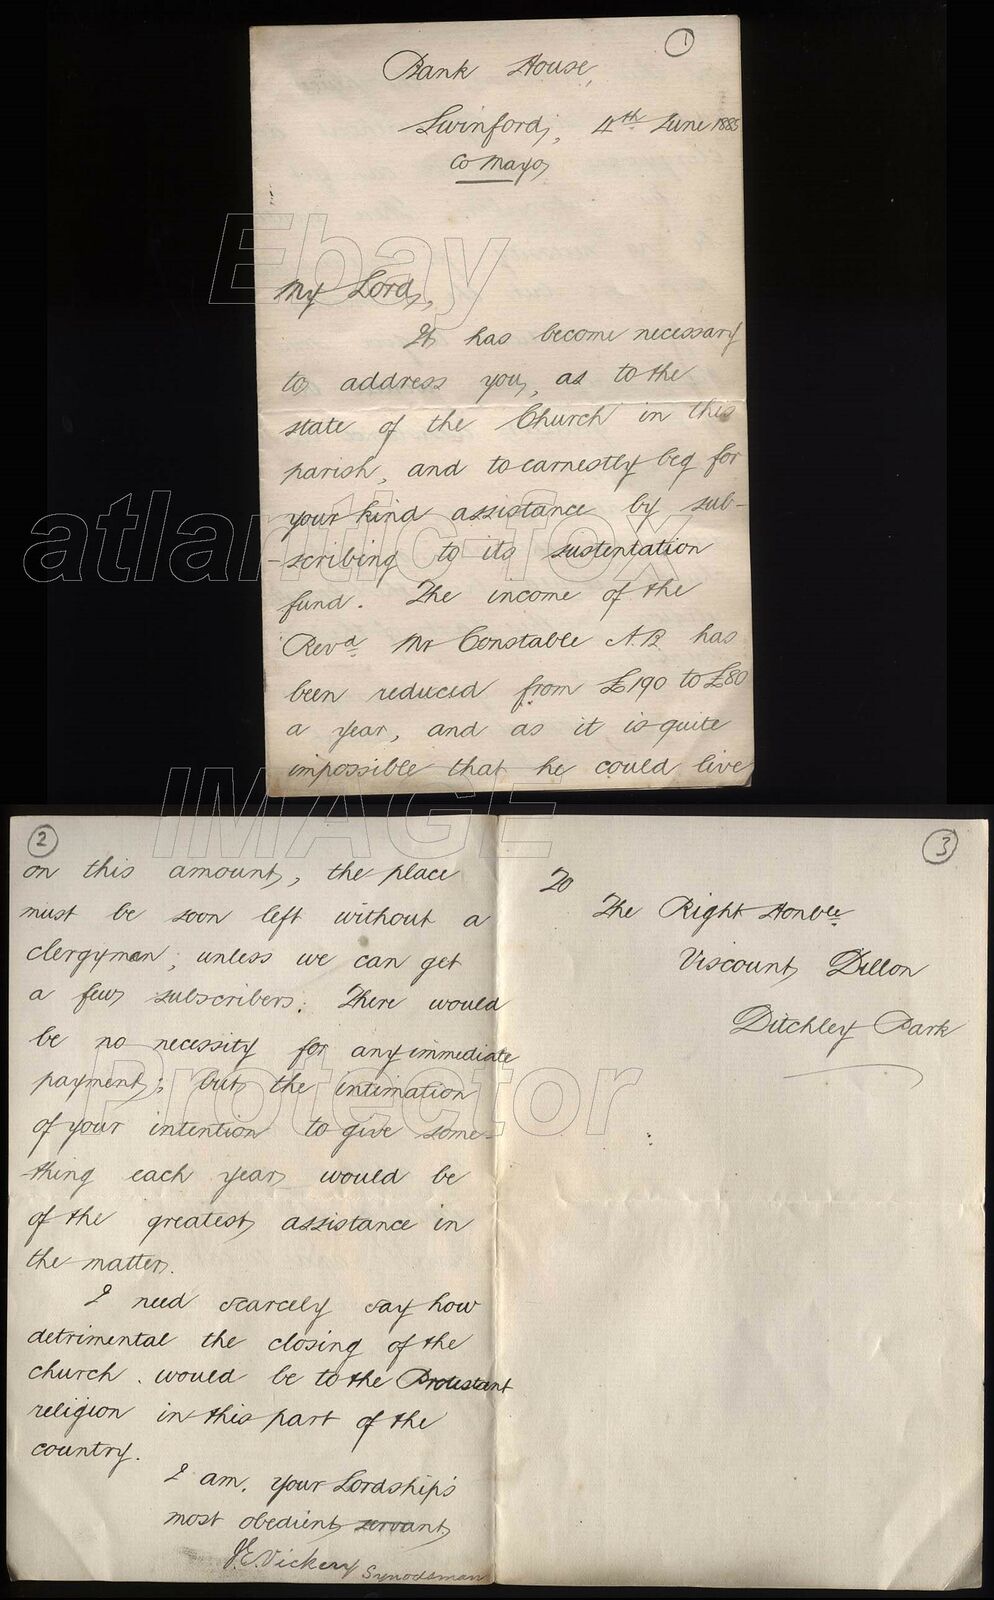 1
Bank House,
Swinford, 4th June 1885
Co Mayo
My Lord,
It has become necessary
to address you, as to the
state of the Church in this
parish, and to earnestly beg for
your kind assistance by sub-
-scribing to its sustentation
fund. The income of the
Revd Mr Constable A.B. has
been reduced from £190 to £80
a year, and as it is quite
impossible that he could live
2
on this amount, the place
must be soon left without a
clergyman; unless we can get
a few subscribers. There would
be no necessity for any immediate
payment; but the intimation
of your intention to give some-
-thing each year would be
of the greatest assistance in
the matter.
I need scarcely say how
detrimental the closing of the
church would be to the Protestant
religion in this part of the
country.
I am, your Lordship's
most obedient servant
J.E. Vickery Synodsman
3
To
The Right Honble
Viscount Dillon
Ditchley Park
Ebay
atlantic-fox
IMAGE
Protector